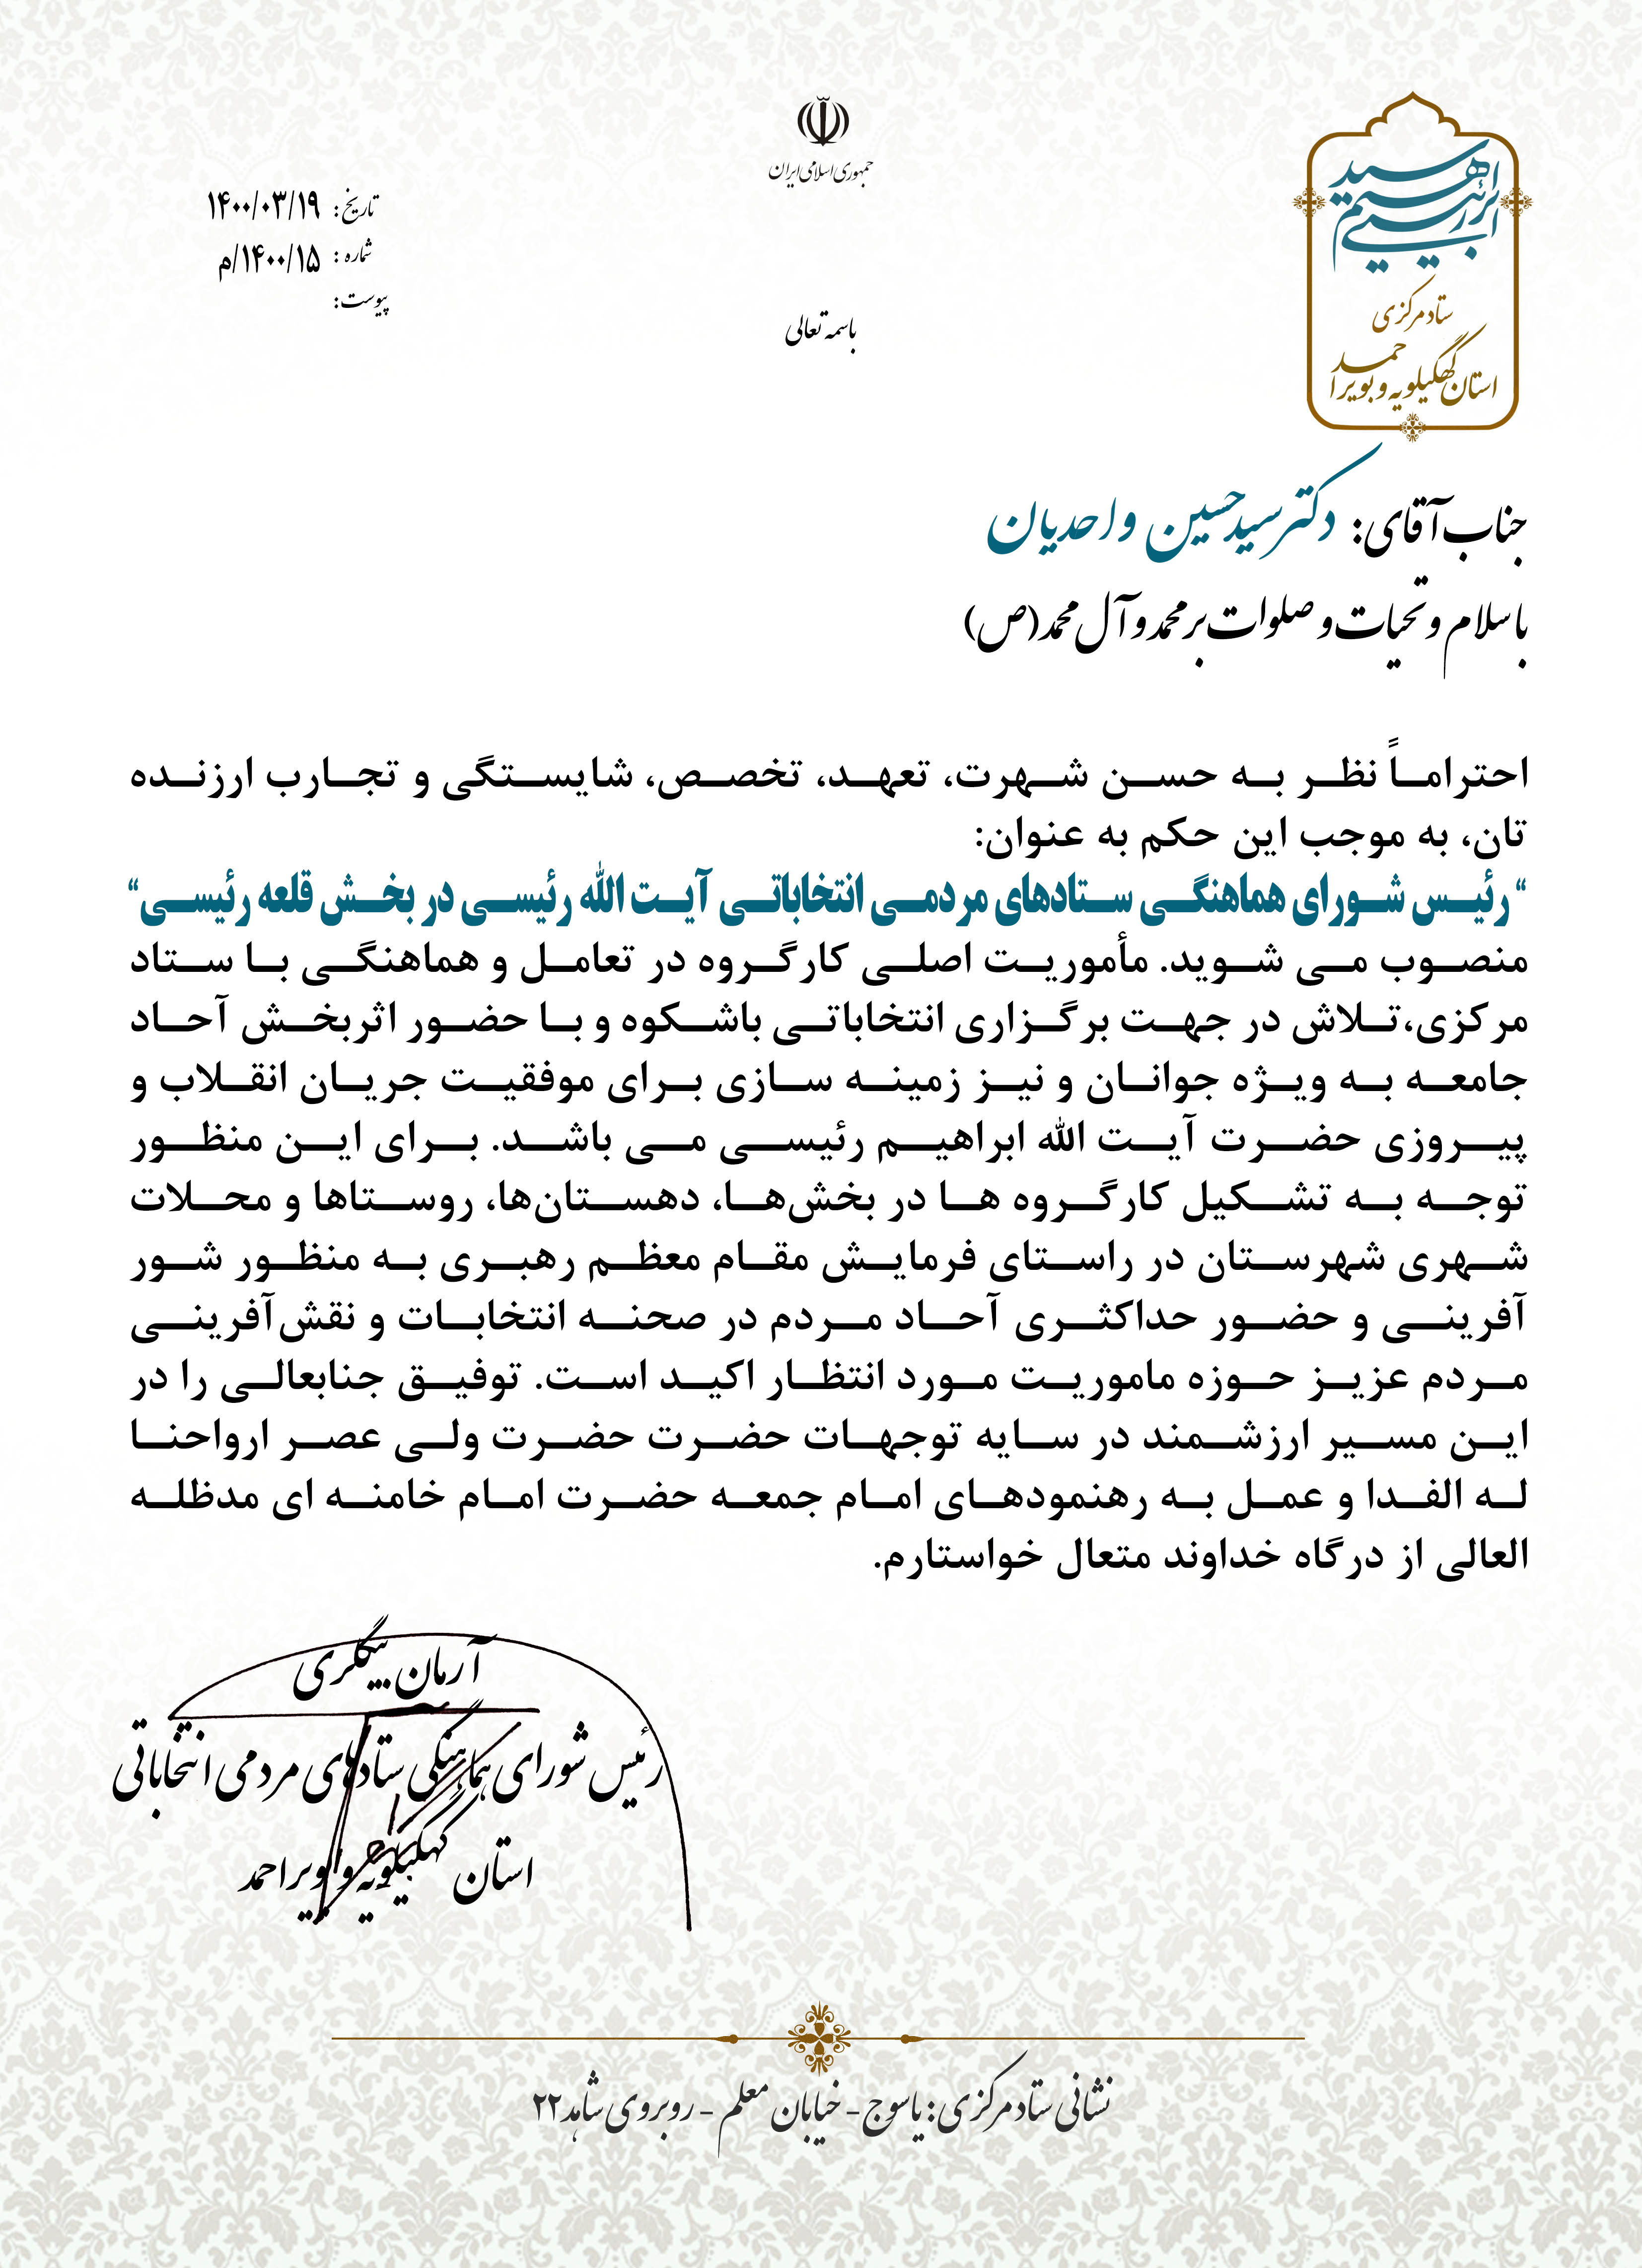 جمهوری اسلامی ایران
سید ابراهیم رئیسی
ستاد مرکزی
استان کهگیلویه و بویراحمد
تاریخ: ۱۴۰۰/۰۳/۱۹
شماره: ۱۴۰۰/۱۵/م
پیوست:
باسمه تعالی
جناب آقای: دکتر سید حسین واحدیان
با سلام و تحیات و صلوات بر محمد و آل محمد (ص)
احتراماً نظر به حسن شهرت، تعهد، تخصص، شایستگی و تجارب ارزنده
تان، به موجب این حکم به عنوان:
“رئیس شورای هماهنگی ستادهای مردمی انتخاباتی آیت الله رئیسی در بخش قلعه رئیسی“
منصوب می شوید. مأموریت اصلی کارگروه در تعامل و هماهنگی با ستاد
مرکزی،تلاش در جهت برگزاری انتخاباتی باشکوه و با حضور اثربخش آحاد
جامعه به ویژه جوانان و نیز زمینه سازی برای موفقیت جریان انقلاب و
پیروزی حضرت آیت الله ابراهیم رئیسی می باشد. برای این منظور
توجه به تشکیل کارگروه ها در بخش‌ها، دهستان‌ها، روستاها و محلات
شهری شهرستان در راستای فرمایش مقام معظم رهبری به منظور شور
آفرینی و حضور حداکثری آحاد مردم در صحنه انتخابات و نقش‌آفرینی
مردم عزیز حوزه ماموریت مورد انتظار اکید است. توفیق جنابعالی را در
این مسیر ارزشمند در سایه توجهات حضرت حضرت ولی عصر ارواحنا
له الفدا و عمل به رهنمودهای امام جمعه حضرت امام خامنه ای مدظله
العالی از درگاه خداوند متعال خواستارم.
آرمان بیگلری
رئیس شورای هماهنگی ستادهای مردمی انتخاباتی
استان کهگیلویه و بویراحمد
نشانی ستاد مرکزی: یاسوج - خیابان معلم - روبروی شاهد ۲۲